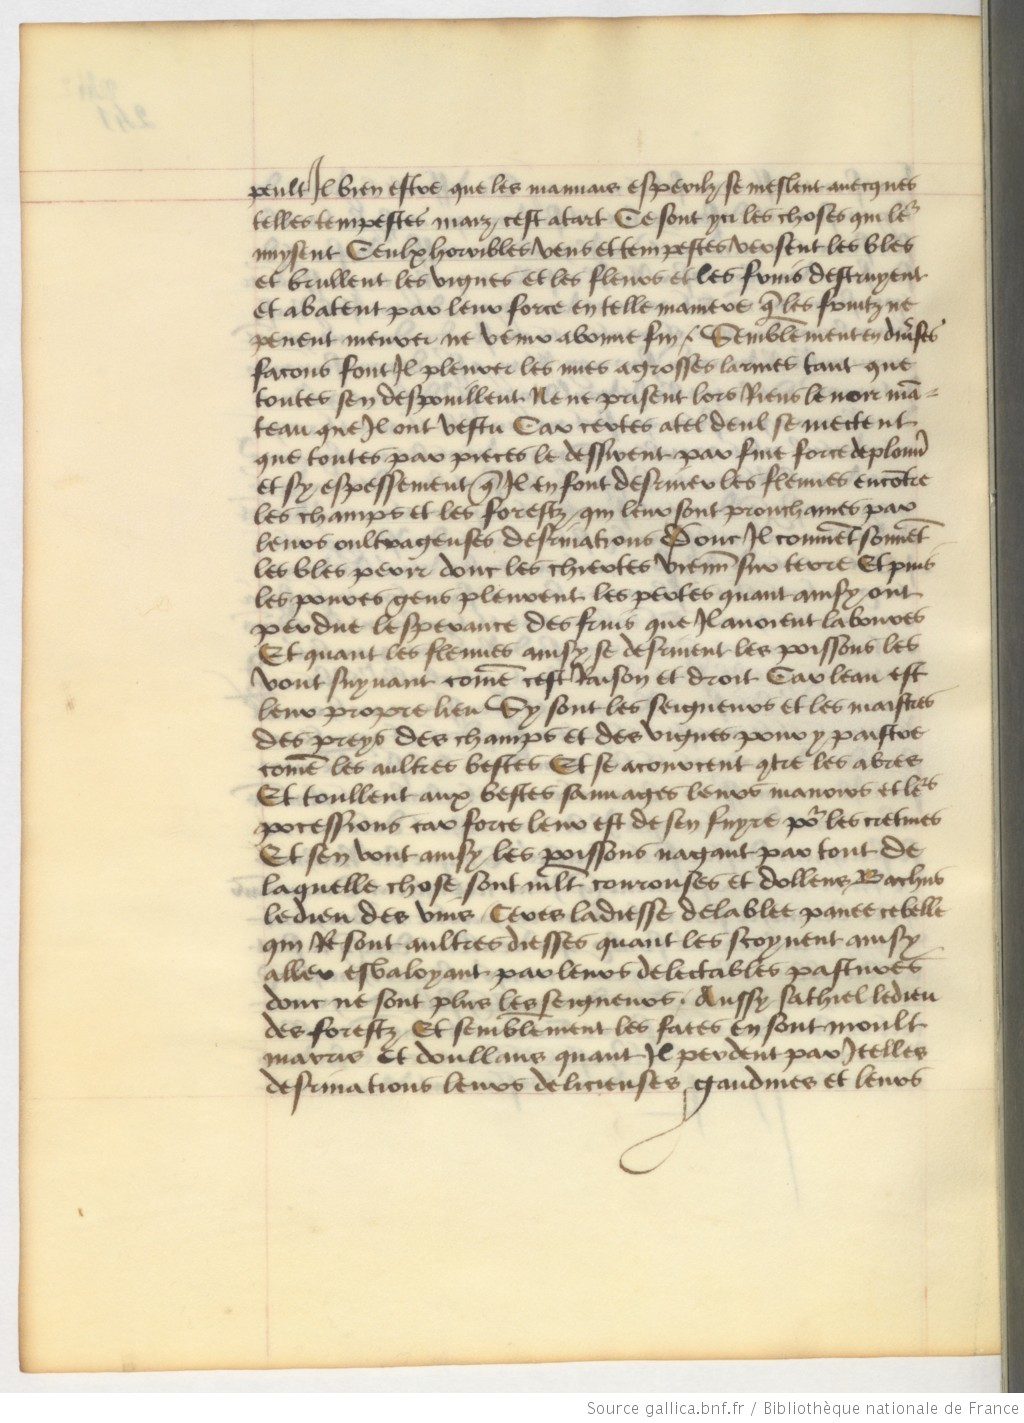 peult Il bien estre que les mauuais esperilz se meslent auecques
telles tempestes maiz cest atart Ce sont yci les choses qui le͛
nuysent Ceulx horribles vens et tempestes versent les bles
et brullent les vignes et les fleurs et les fruis destruyent
et abatent par leur force en telle maniere q̄ les fruitz ne
peuent meurer ne venir abonne fin / Semblement en diu͛ses
facons font Il pleuuer les nues agrosses larmes tant que
toutes sen despouillent Ne ne prisent lors Riens le noir mā-
teau que Il ont vestu Car certes atel deul se mectent
que toutes par pieces le dessirent par fine force de plour͛
et sy espessement q̄ Il en font desriuer les fleuues encōtre
les champs et les forestz qui leur sont prouchaines par
leurs oultrageuses desriuations Donc Il conuiēt souuēt
les bles perir donc les chiertes vienn̄t sur terre Et puis
les poures gens pleurent les pertes quant ainsy ont
perdue lesperance des fruis que Il auoient laboures
Et quant les fleuues ainsy se desriuent les poissons les
vont suyuant com̄e cest Raison et droit Car leau est
leur propre lieu Sy sont les seigneurs et les maistres
des preys des champs et des vignes pour y paistre
com̄e les aultres bestes Et se acourcent 9tre les abres
Et toullent aux bestes sauuages leurs manoirs et le͛s
pocessions car force leur est de sen fuyre po͛ les cretines
Et sen vont ainsy les poissons nagant par tout de
laquelle chose sont mlt̄ courouses et dollens Bachus
le dieu des vins Ceres ladiesse delablee panee cebelle
qui Resont aultres diesses quant les scoyuent ainsy
aller esbaloyant par leurs delectables pastures
donc ne sont plus les seigneurs . Aussy sathiel le dieu
des forestz Et semblēment les faees en sont moult
marris Et doullans quant Il perdent par Itelles
desriuations leurs delicieuses gaudines et leurs
Source gallica.bnf.fr / Bibliothèque nationale de France